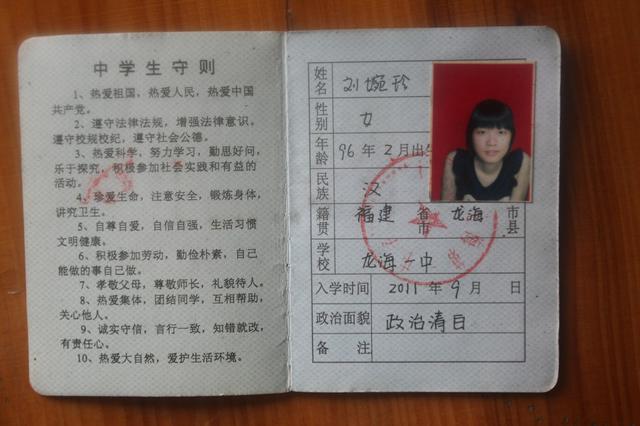 中学生守则
1、热爱祖国，热爱人民，热爱中国
共产党。
2、遵守法律法规，增强法律意识。
遵守校规校纪，遵守社会公德。
3、热爱科学，努力学习，勤思好问，
乐于探究，积极参加社会实践和有益的
活动。
4、珍爱生命，注意安全，锻炼身体，
讲究卫生。
5、自尊自爱，自信自强，生活习惯
文明健康。
6、积极参加劳动，勤俭朴素，自己
能做的事自己做。
7、孝敬父母，尊敬师长，礼貌待人。
8、热爱集体，团结同学，互相帮助，
关心他人。
9、诚实守信，言行一致，知错就改，
有责任心。
10、热爱大自然，爱护生活环境。
姓名 刘婉玲
性别 女
年龄 96年2月出生
民族 汉
籍贯 福建省市 龙海市县
学校 龙海一中
入学时间 2011年9月 日
政治面貌 政治清目
备注